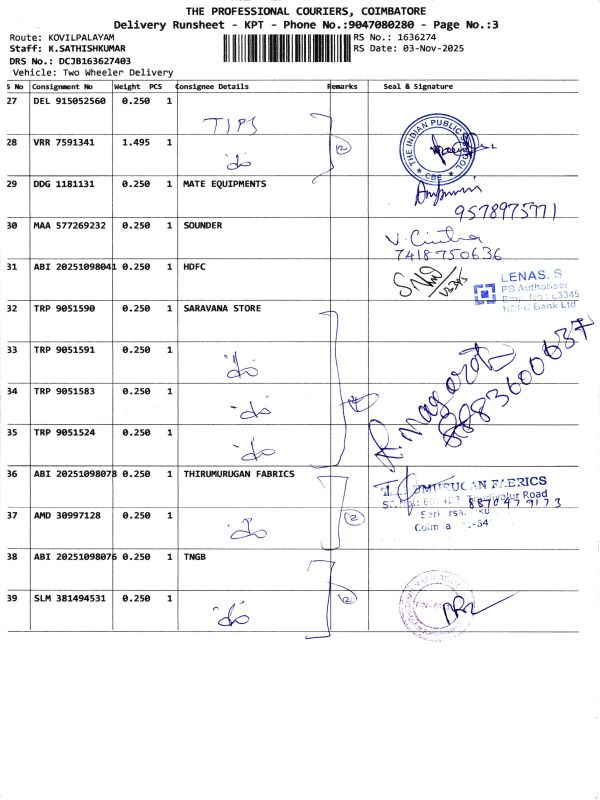 THE PROFESSIONAL COURIERS, COIMBATORE
Delivery Runsheet - KPT - Phone No.:9047080280 - Page No.:3
Route: KOVILPALAYAM
RS No.: 1636274
Staff: K.SATHISHKUMAR
RS Date: 03-Nov-2025
DRS No.: DCJB163627403
Vehicle: Two Wheeler Delivery
S No Consignment No Weight PCS Consignee Details Remarks Seal & Signature
27 DEL 915052560 0.250 1 TIPS
THE INDIAN PUBLIC
CBE
28 VRR 7591341 1.495 1 do
29 DDG 1181131 0.250 1 MATE EQUIPMENTS
9578975771
30 MAA 577269232 0.250 1 SOUNDER
7418750636
31 ABI 20251098041 0.250 1 HDFC
LENAS, S
PB Authoriser
Emp. No : L3345
HDFC Bank Ltd
32 TRP 9051590 0.250 1 SARAVANA STORE
33 TRP 9051591 0.250 1 do
34 TRP 9051583 0.250 1 do
35 TRP 9051524 0.250 1 do
8883600687
36 ABI 20251098078 0.250 1 THIRUMURUGAN FABRICS
FABRICS
Road
8870479173
37 AMD 30997128 0.250 1 do
38 ABI 20251098076 0.250 1 TNGB
39 SLM 381494531 0.250 1 do